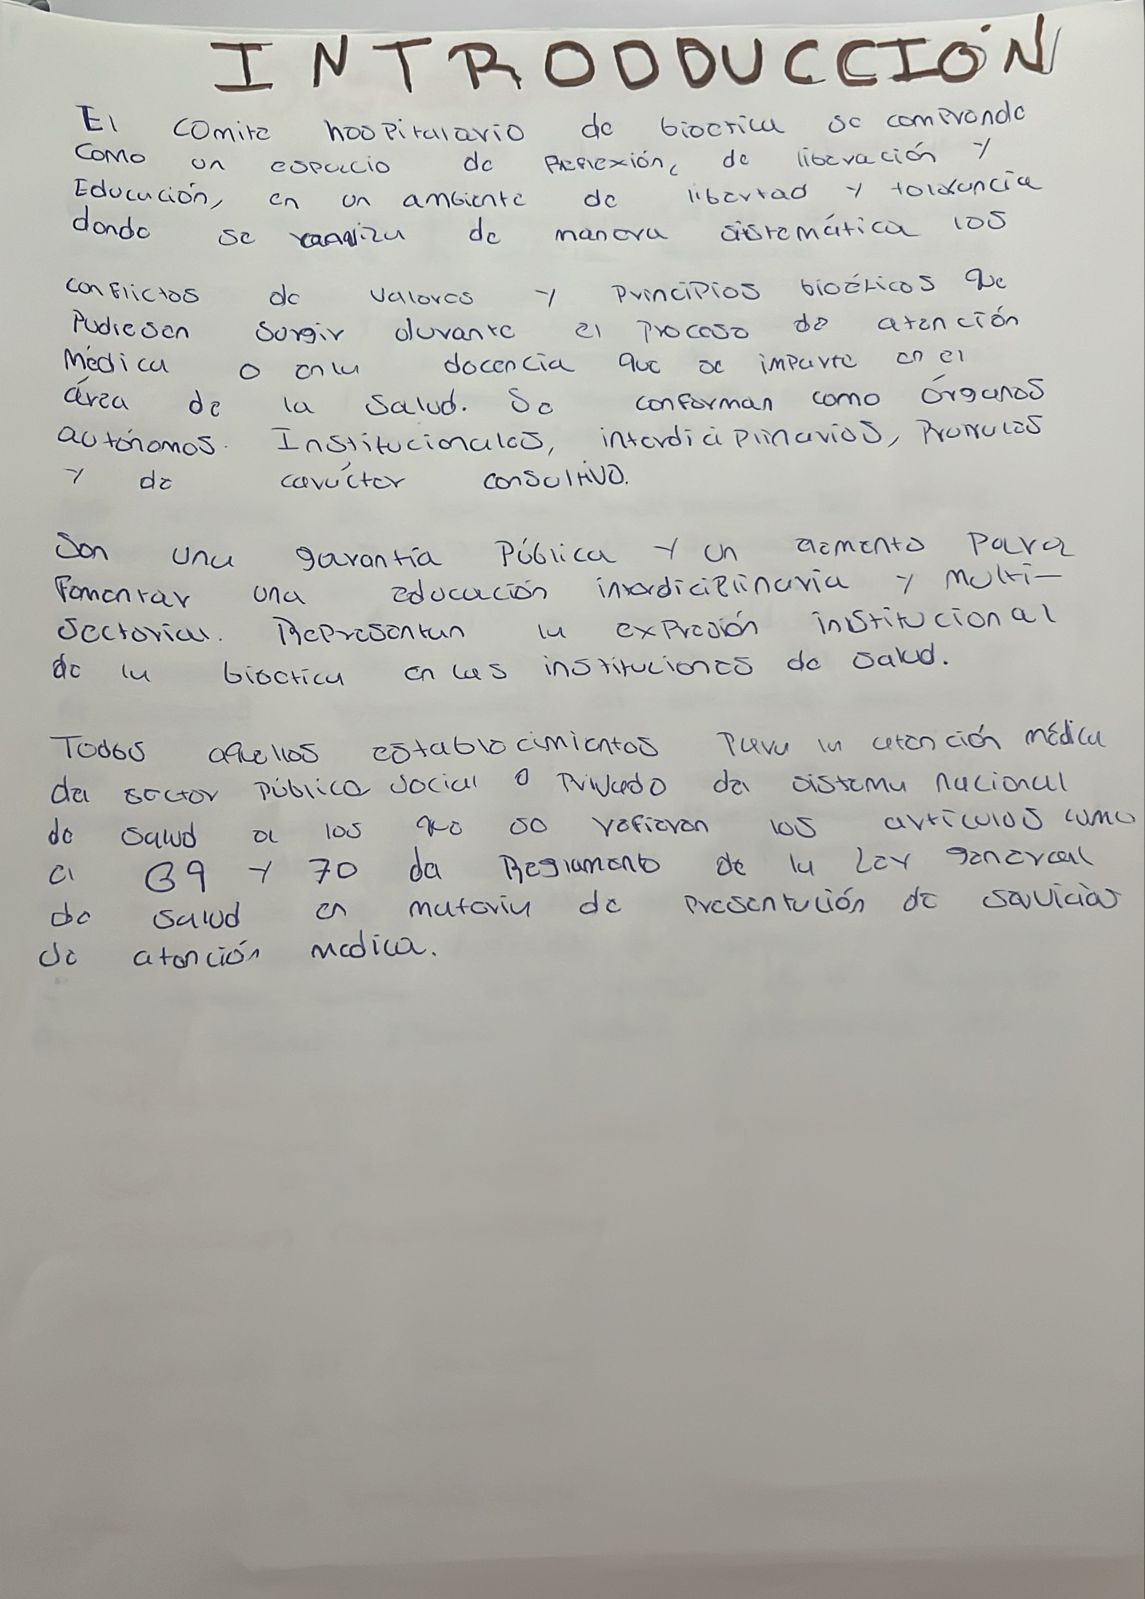 INTRODDUCCIÓN
El comite hospitalario de bioetica se comprende
como un espacio de Reflexión, de liberación y
Educación, en un ambiente de libertad y tolerancia
donde se de manera sistemática los
conflictos de valores y principios bioéticos que
Pudiesen surgir durante el proceso de atención
Médica o en la docencia que se imparte en el
área de la salud. Se conforman como órganos
autónomos. Institucionales, interdiciplinarios, Prurules
y de carácter consultivo.
Son una garantía Pública y un elemento para
Fomentar una educación interdiciplinaria y multi-
sectorial. Representan la expresión institucional
de la bioetica en las instituciones de salud.
Todos aquellos establecimientos para la atención médica
del sector público social o privado del sistema nacional
de salud a los que se refieren los artículos como
el 69 y 70 del Reglamento de la Ley general
de salud en materia de presentación de servicios
de atención medica.